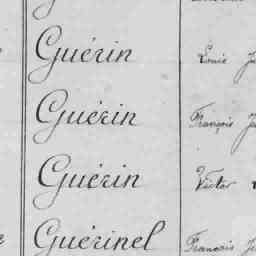 Guérin Louis
Guérin François
Guérin Victor
Guérinel François